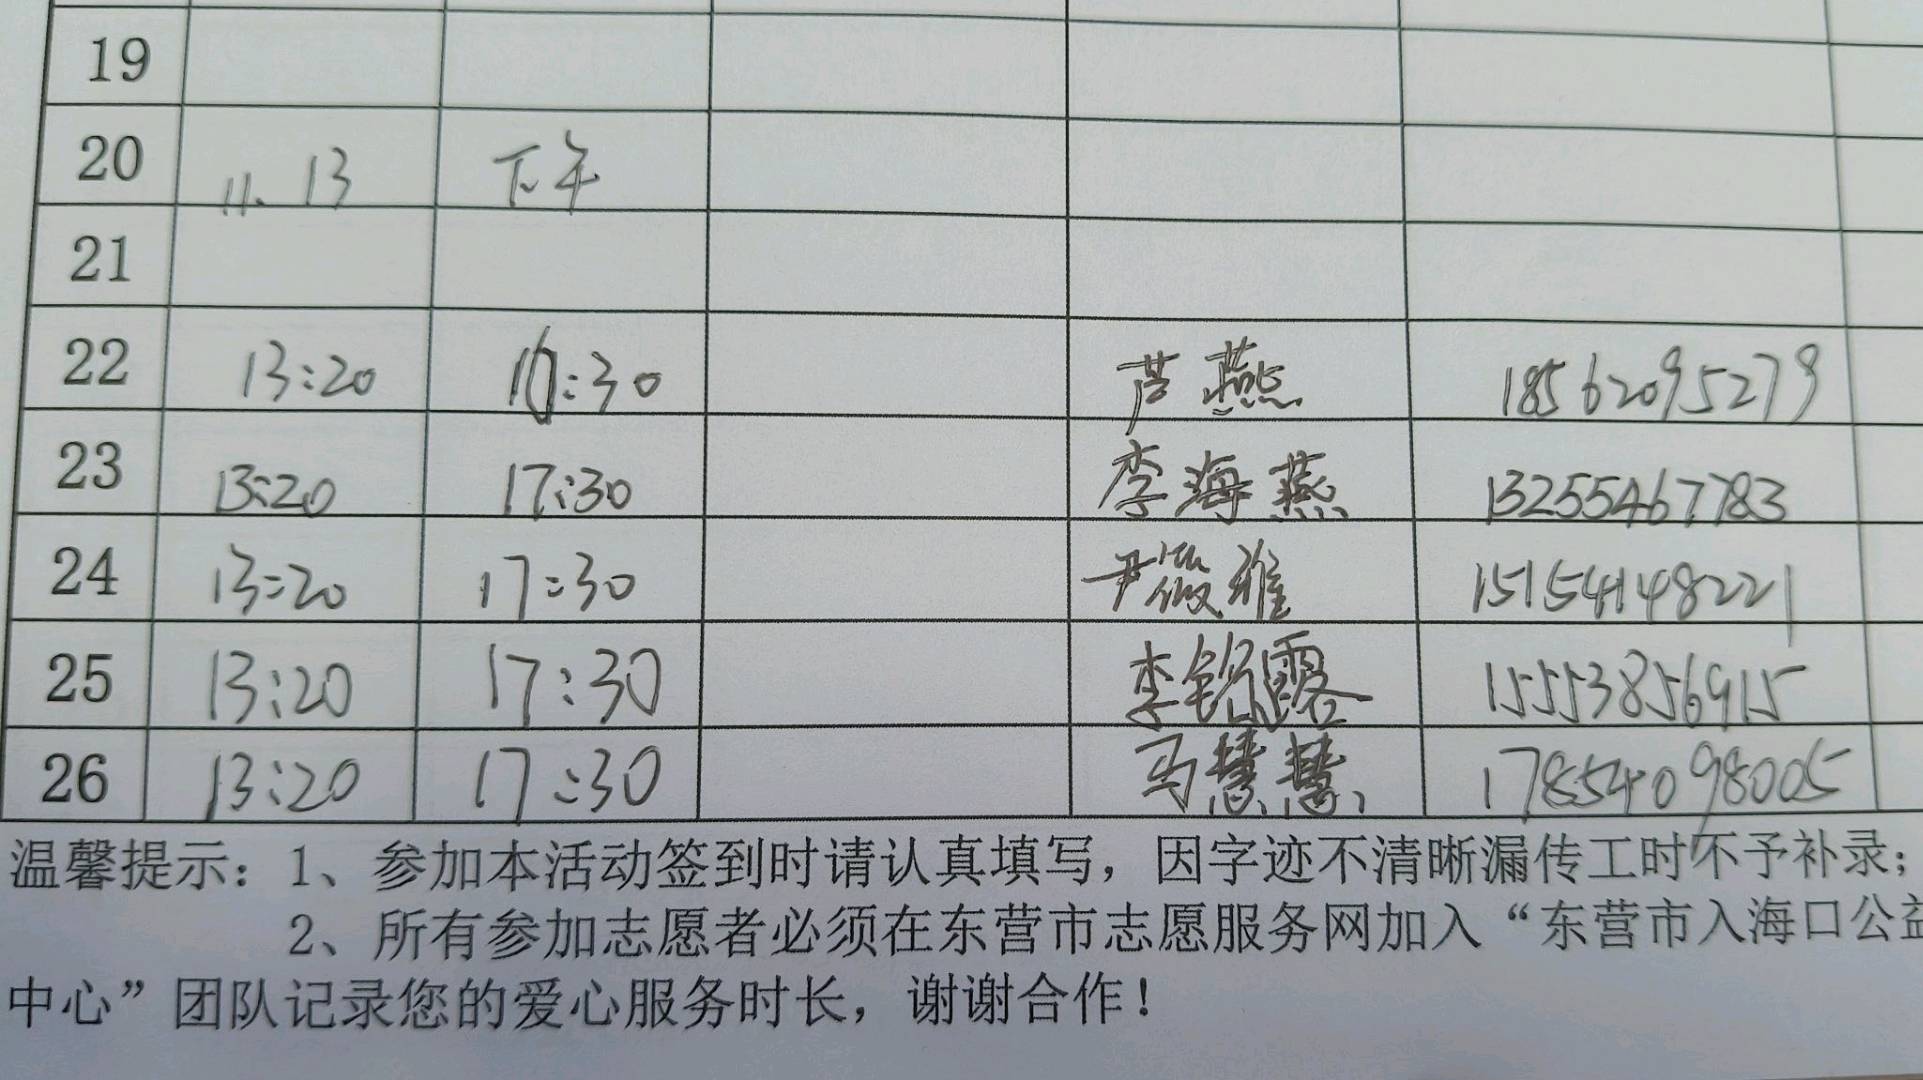 19
20 11.13 下午
21
22 13:20 :30 芦燕 18562095279
23 13:20 17:30 李海燕 13255467783
24 13:20 17:30 尹筱雅 15154148221
25 13:20 17:30 李铭露 15553856915
26 13:20 17:30 马慧慧 17854098005
温馨提示：1、参加本活动签到时请认真填写，因字迹不清晰漏传工时不予补录；
2、所有参加志愿者必须在东营市志愿服务网加入“东营市入海口公益
中心”团队记录您的爱心服务时长，谢谢合作！